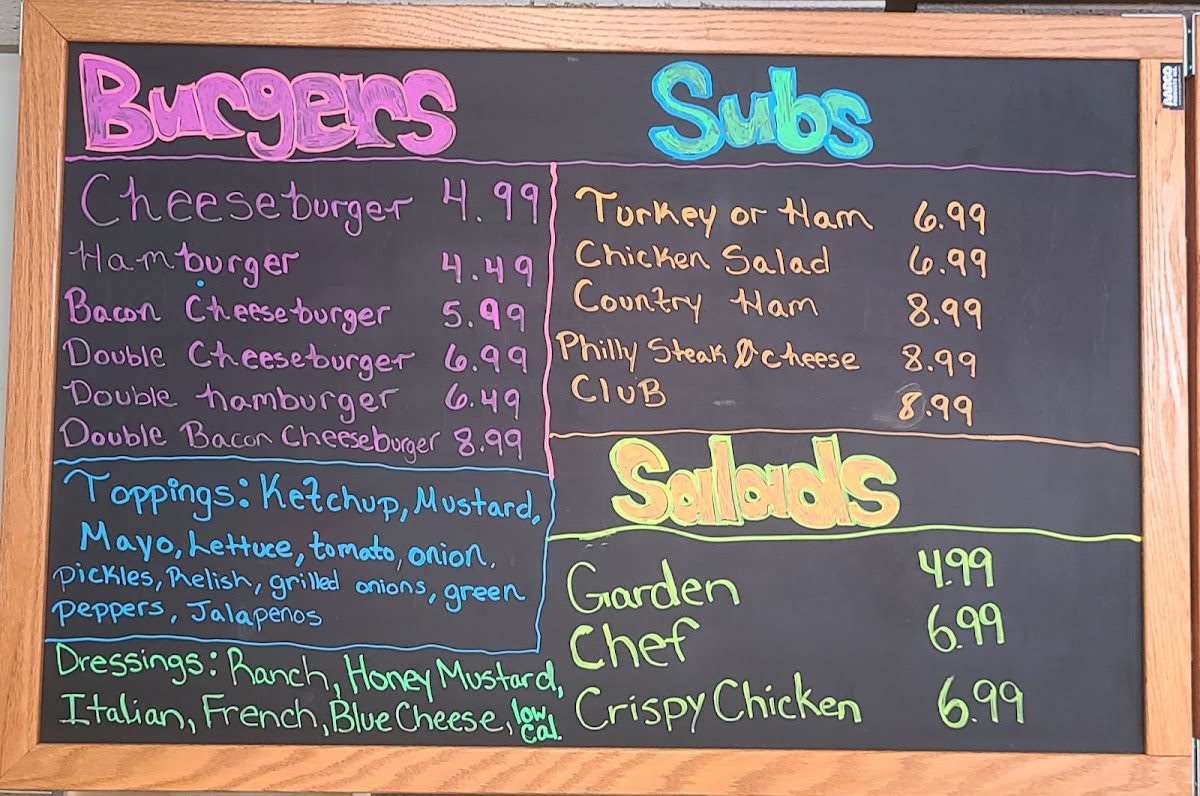 Burgers
Cheeseburger 4.99
Hamburger 4.49
Bacon Cheeseburger 5.99
Double Cheeseburger 6.99
Double hamburger 6.49
Double Bacon Cheeseburger 8.99
Toppings: Ketchup, Mustard,
Mayo, Lettuce, tomato, onion,
pickles, Relish, grilled onions, green
peppers, Jalapenos
Dressings: Ranch, Honey Mustard,
Italian, French, Blue Cheese, low cal.
Subs
Turkey or Ham 6.99
Chicken Salad 6.99
Country Ham 8.99
Philly Steak & cheese 8.99
CluB 8.99
Salads
Garden 4.99
Chef 6.99
Crispy Chicken 6.99
AARCO